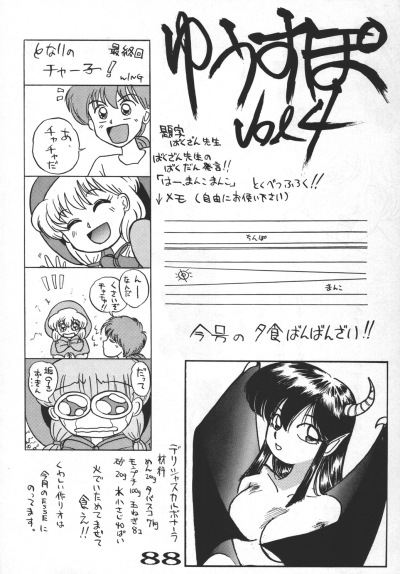 ゆうすぽ
Vol 4
となりの
チャー子!
最終回
WING
あ、
チャチャだ
んー
なんだ
くさいぞ
チャチャ!!
だって
題字
ばくざん先生
ばくざん先生の
ばくだん発言!!
「はーまんこまんこ」
とくべつふろく!!
↓メモ (自由にお使い下さい)
ちんぽ
まんこ
今号の夕食ばんばんざい!!
デリシャスカルボナーラ
材料
めん20g タバスコ 7kg
モンプチ100g 玉ねぎ8コ
砂20g 水小さじ40ぱい
火でいためてまぜて
食え!!
くわしい作り方は
今月のESSEに
のってます。
88